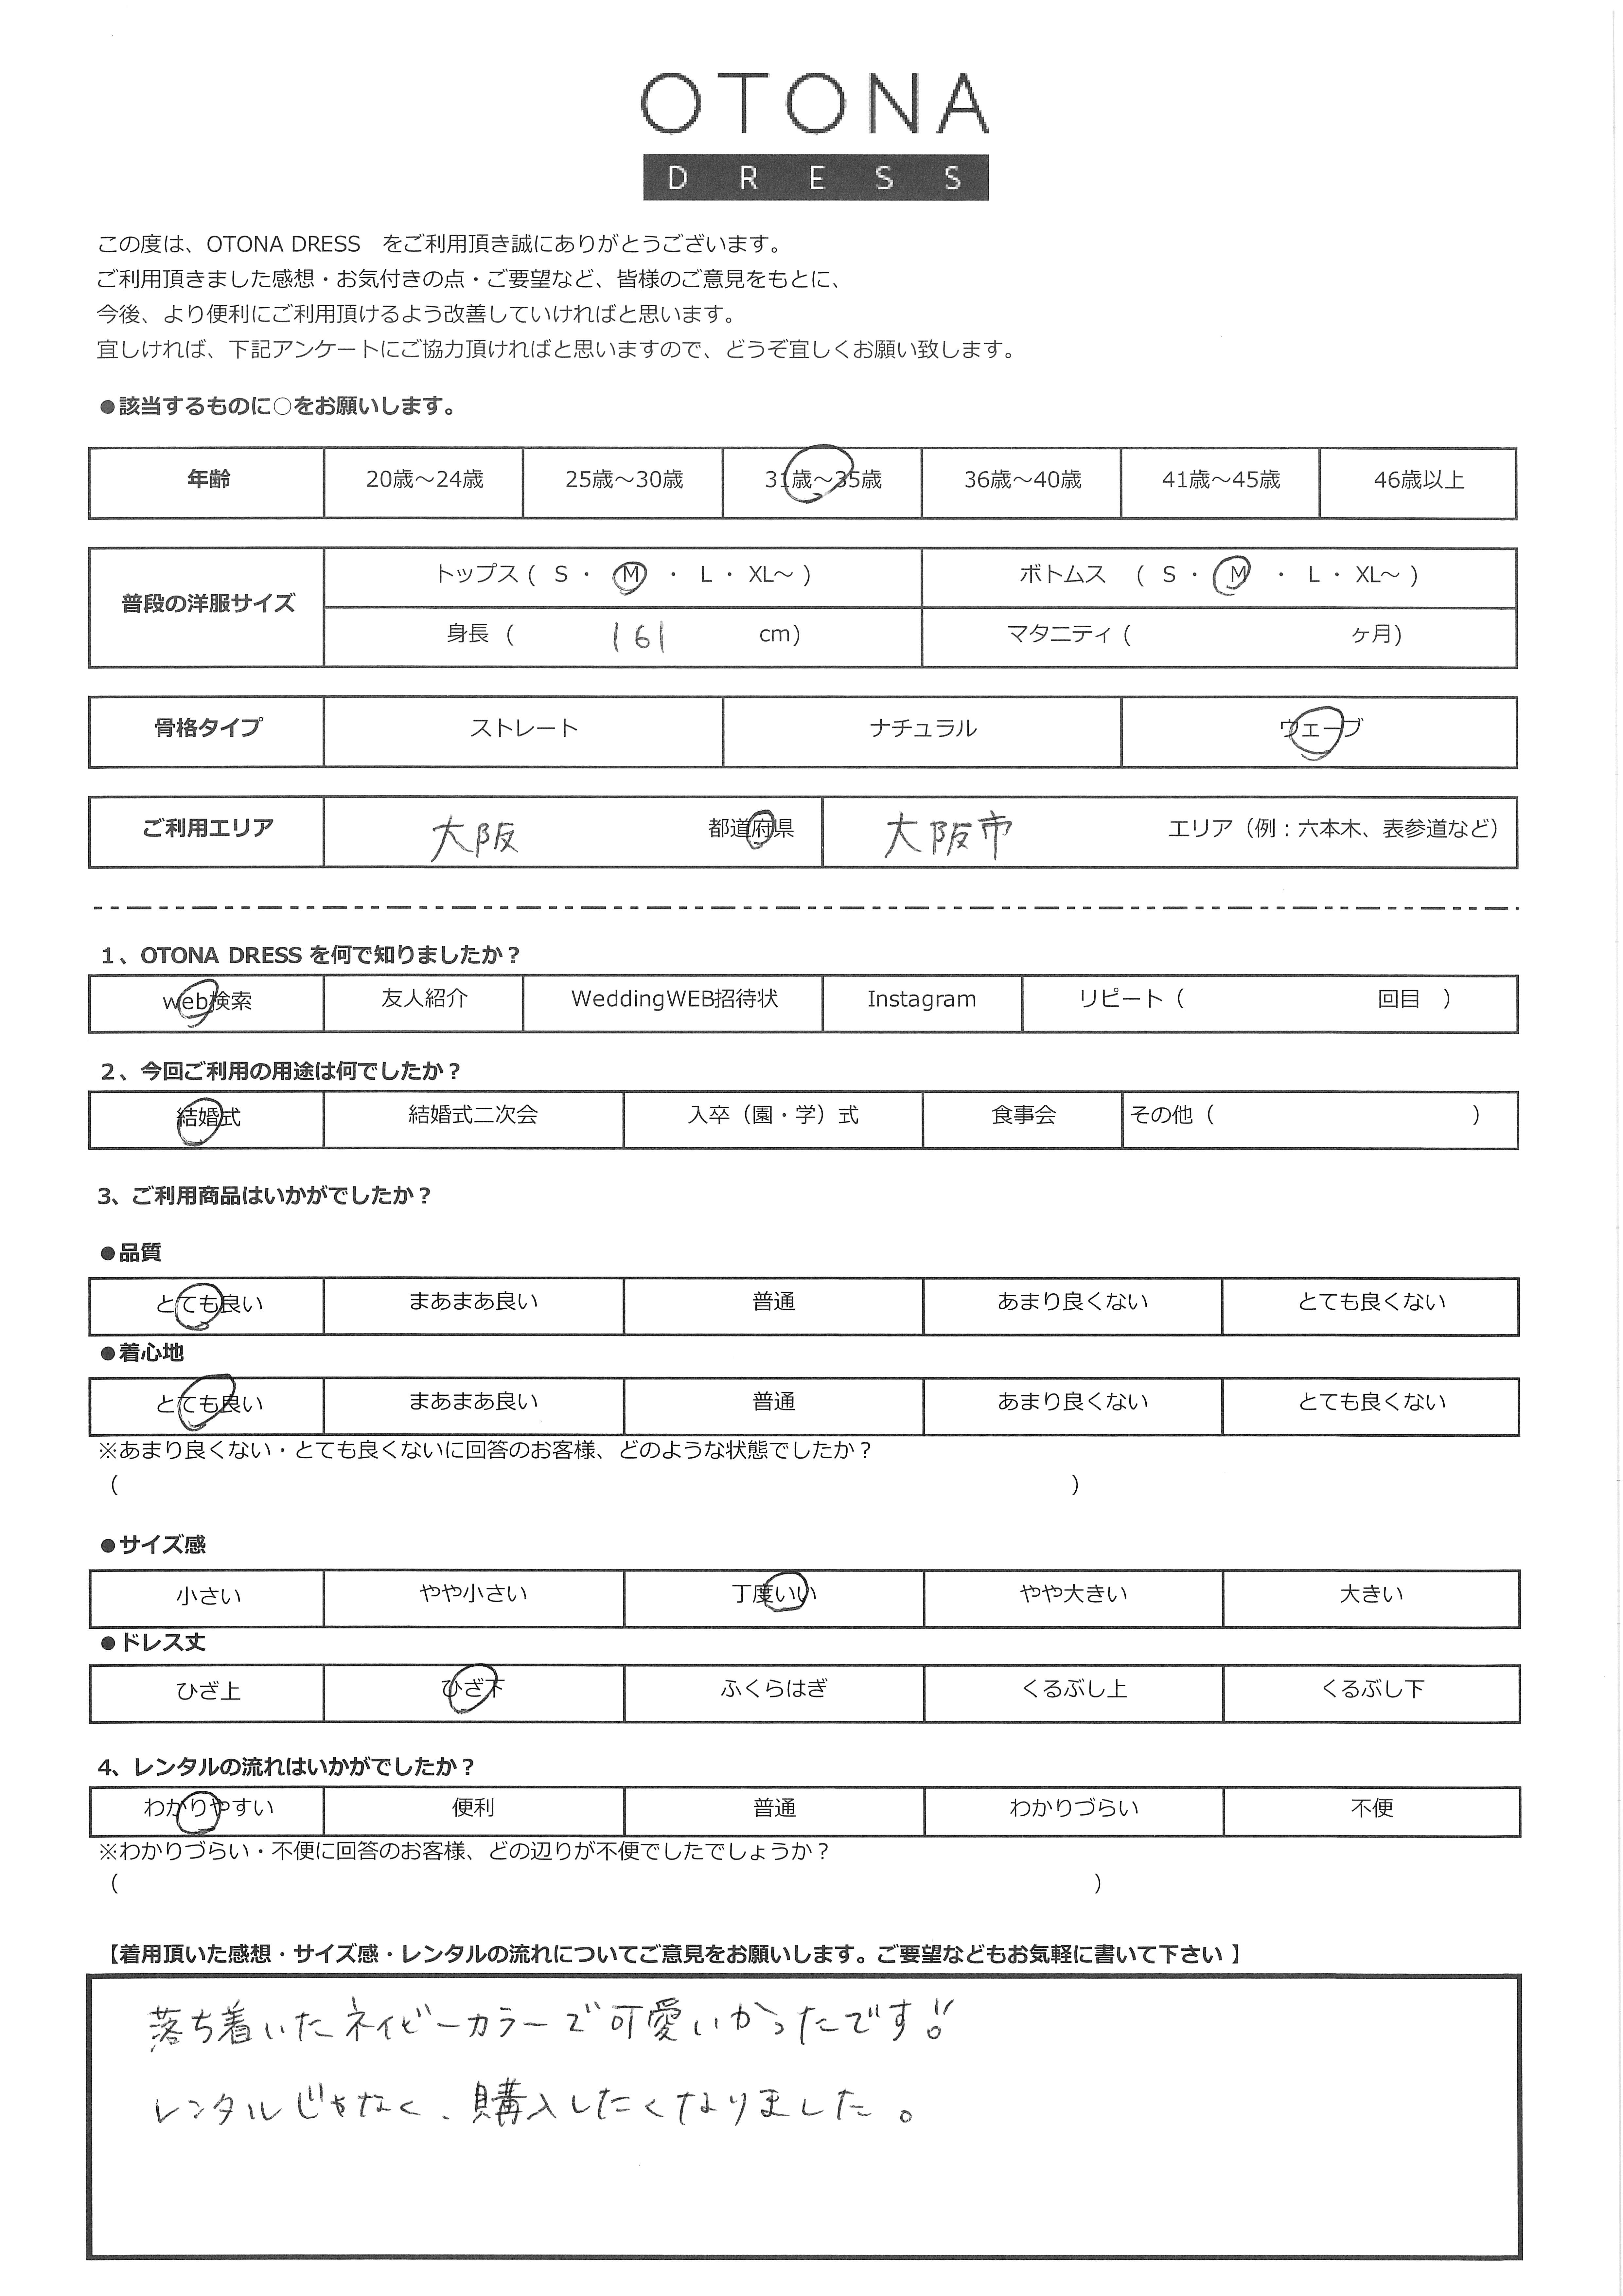 OTONA
DRESS
この度は、OTONA DRESS　をご利用頂き誠にありがとうございます。
ご利用頂きました感想・お気付きの点・ご要望など、皆様のご意見をもとに、
今後、より便利にご利用頂けるよう改善していければと思います。
宜しければ、下記アンケートにご協力頂ければと思いますので、どうぞ宜しくお願い致します。
●該当するものに○をお願いします。
年齢 20歳～24歳 25歳～30歳 31歳～35歳 36歳～40歳 41歳～45歳 46歳以上
普段の洋服サイズ
トップス ( S ・ M ・ L ・ XL～ ) ボトムス ( S ・ M ・ L ・ XL～ )
身長 ( 161 cm) マタニティ ( ヶ月)
骨格タイプ ストレート ナチュラル ウェーブ
ご利用エリア 大阪 都道府県 大阪市 エリア（例：六本木、表参道など）
1、OTONA DRESS を何で知りましたか？
web検索 友人紹介 WeddingWEB招待状 Instagram リピート（ 回目 ）
2、今回ご利用の用途は何でしたか？
結婚式 結婚式二次会 入卒（園・学）式 食事会 その他（ ）
3、ご利用商品はいかがでしたか？
●品質
とても良い まあまあ良い 普通 あまり良くない とても良くない
●着心地
とても良い まあまあ良い 普通 あまり良くない とても良くない
※あまり良くない・とても良くないに回答のお客様、どのような状態でしたか？
（ ）
●サイズ感
小さい やや小さい 丁度いい やや大きい 大きい
●ドレス丈
ひざ上 ひざ下 ふくらはぎ くるぶし上 くるぶし下
4、レンタルの流れはいかがでしたか？
わかりやすい 便利 普通 わかりづらい 不便
※わかりづらい・不便に回答のお客様、どの辺りが不便でしたでしょうか？
（ ）
【着用頂いた感想・サイズ感・レンタルの流れについてご意見をお願いします。ご要望などもお気軽に書いて下さい 】
落ち着いたネイビーカラーで可愛いかったです!!
レンタルじゃなく、購入したくなりました。